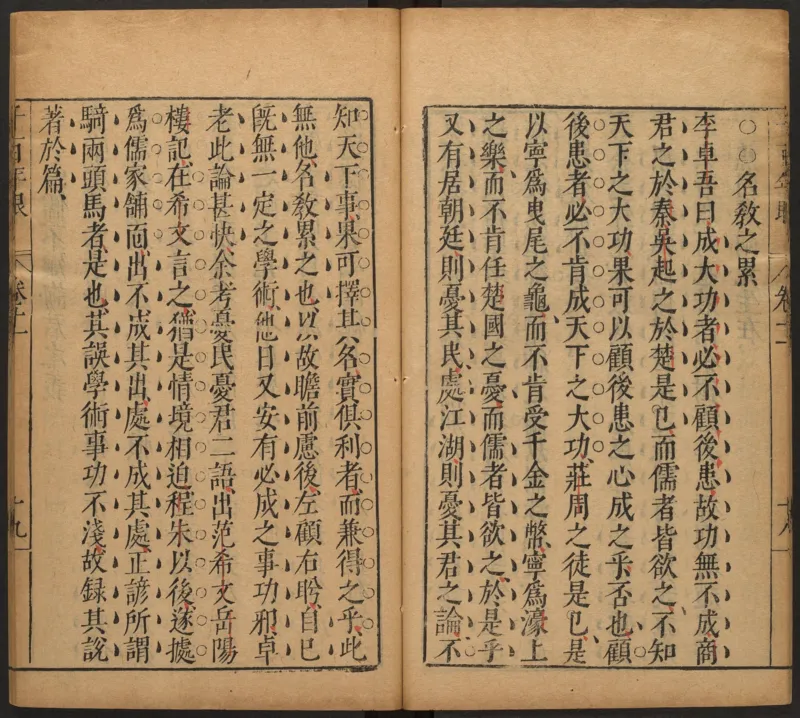 名教之累
李卓吾曰成大功者必不顧後患故功無不成商
君之於秦吳起之於楚是已而儒者皆欲之不知
天下之大功果可以顧後患之心成之乎否也顧
後患者必不肯成天下之大功莊周之徒是已是
以寧爲曳尾之龜而不肯受千金之幣寧爲濠上
之樂而不肯任楚國之憂而儒者皆欲之於是乎
又有居朝廷則憂其民處江湖則憂其君之論不
卷十一
十八
知天下事果可擇其名實俱利者而兼得之乎此
無他名教累之也以故瞻前慮後左顧右盻自已
旣無一定之學術他日又安有必成之事功邪卓
老此論甚快余考憂民憂君二語出范希文岳陽
樓記在希文言之猶是情境相迫程朱以後遂據
爲儒家舖面出不成其出處不成其處正諺所謂
騎兩頭馬者是也其誤學術事功不淺故録其說
著於篇
千百年眼
卷十一
十九